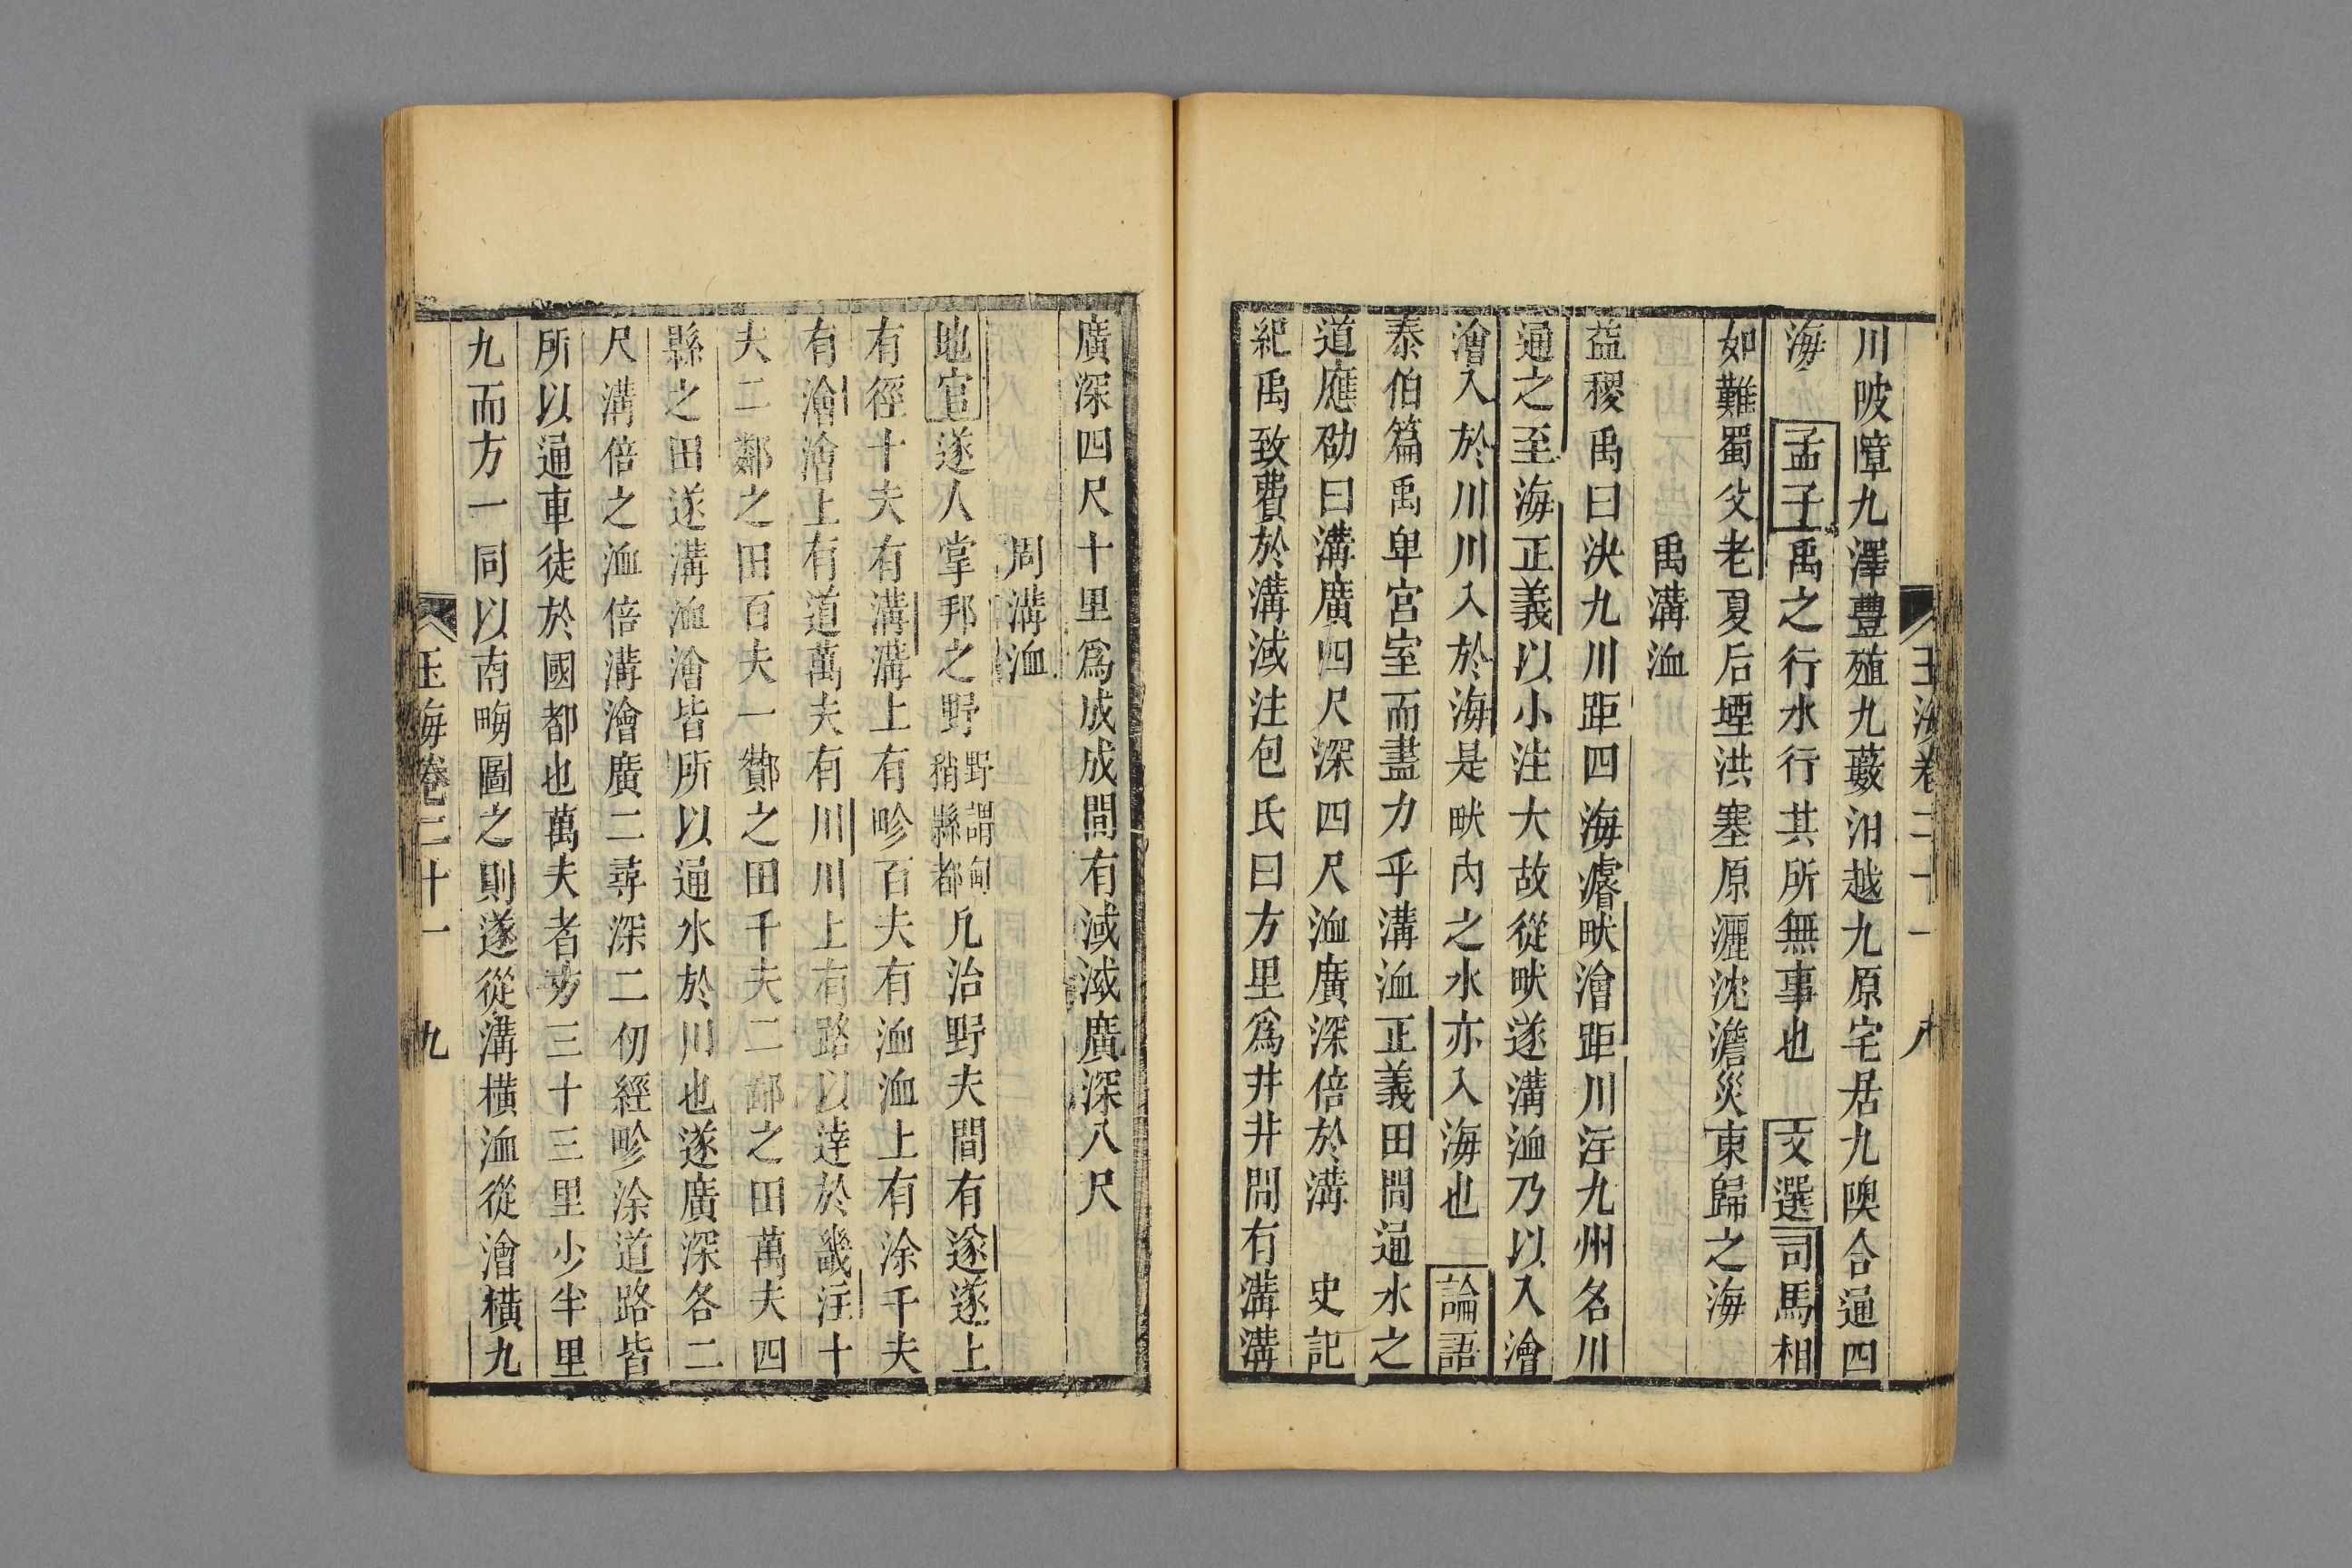 玉海卷二十一 八
川陂障九澤豊殖九藪汨越九原宅居九隩合通四
海 孟子禹之行水行其所無事也 文選司馬相
如難蜀父老夏后堙洪塞原灑沈澹災東歸之海
禹溝洫
益稷禹曰決九川距四海濬畎澮距川注九州名川
通之至海正義以小注大故從畎遂溝洫乃以入澮
澮入於川川入於海是畎內之水亦入海也 論語
泰伯篇禹卑宮室而盡力乎溝洫正義田間通水之
道應劭曰溝廣四尺深四尺洫廣深倍於溝 史記
紀禹致費於溝淢注包氏曰方里爲井井間有溝溝
廣深四尺十里爲成成間有淢淢廣深八尺
周溝洫
地官遂人掌邦之野野謂甸稍縣都凡治野夫間有遂遂上
有徑十夫有溝溝上有畛百夫有洫洫上有涂千夫
有澮澮上有道萬夫有川川上有路以逹於畿注十
夫二鄰之田百夫一酇之田千夫二鄙之田萬夫四
縣之田遂溝洫澮皆所以通水於川也遂廣深各二
尺溝倍之洫倍溝澮廣二尋深二仞經畛涂道路皆
所以通車徒於國都也萬夫者方三十三里少半里
九而方一同以南畮圖之則遂從溝橫洫從澮橫九
玉海卷二十一 九